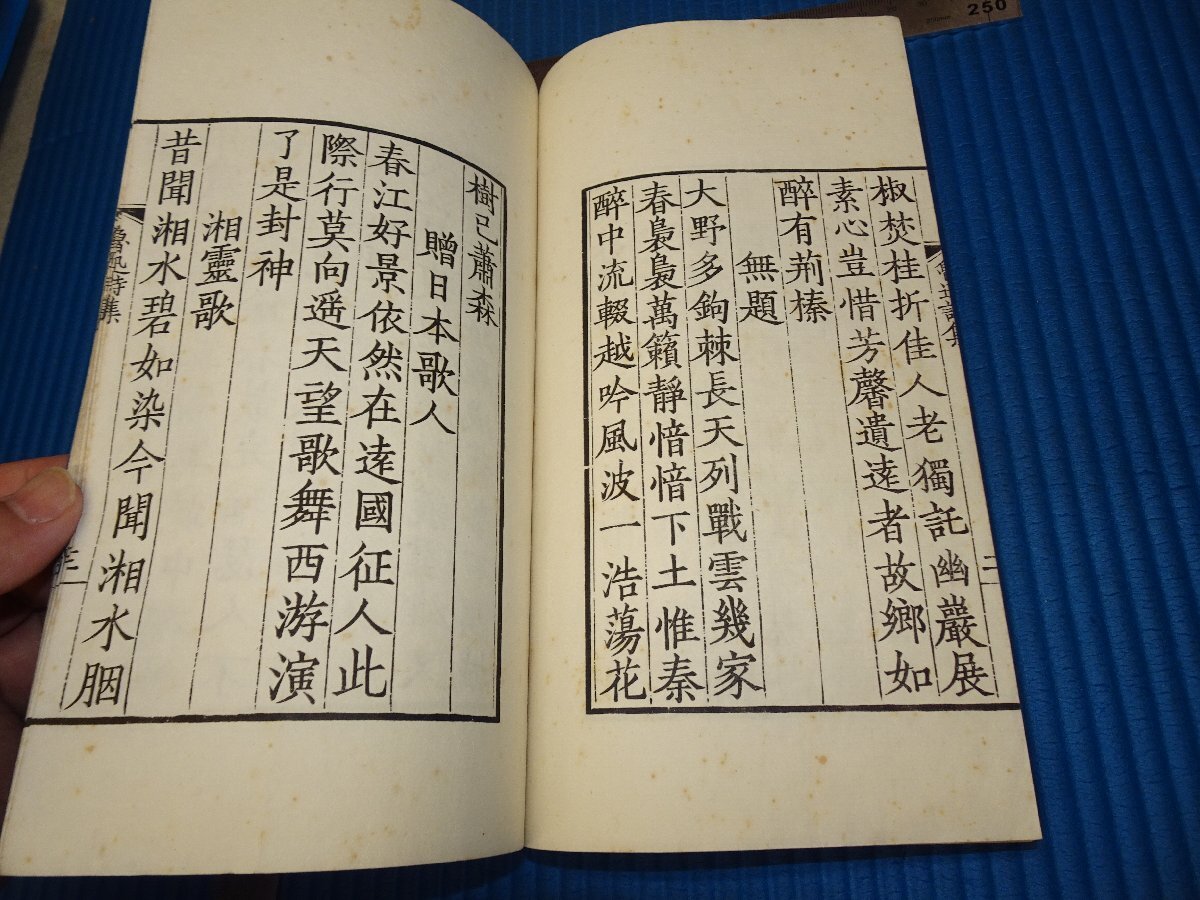 椒焚桂折佳人老獨託幽巖展
素心豈惜芳馨遺遠者故鄉如
醉有荆榛
無題
大野多鉤棘長天列戰雲幾家
春裊裊萬籟靜愔愔下土惟秦
醉中流輟越吟風波一浩蕩花
樹已蕭森
贈日本歌人
春江好景依然在遠國征人此
際行莫向遥天望歌舞西游演
了是封神
湘靈歌
昔聞湘水碧如染今聞湘水胭
魯迅詩集
250